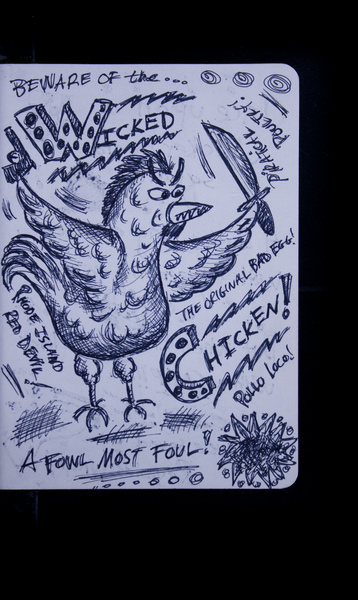 BEWARE OF the...
WICKED
PIRATICAL
POULTRY!
THE ORIGINAL BAD EGG!
CHICKEN!
RHODE ISLAND
RED DEVIL!
Pollo Loco!
A FOWL MOST FOUL!